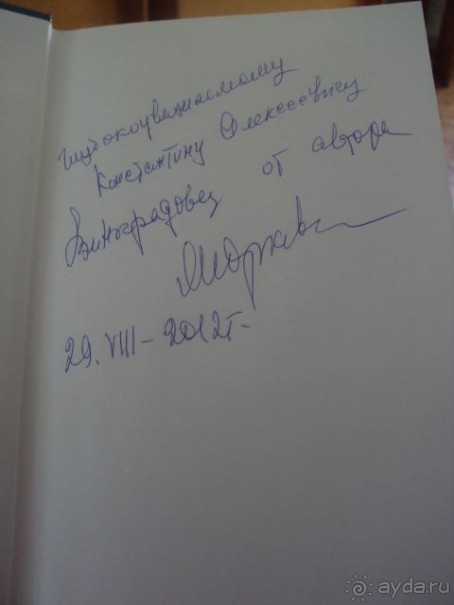 Глубокоуважаемому
Константину Алексеевичу
Виноградову от автора
29. VIII – 2012 г.
ayda.ru